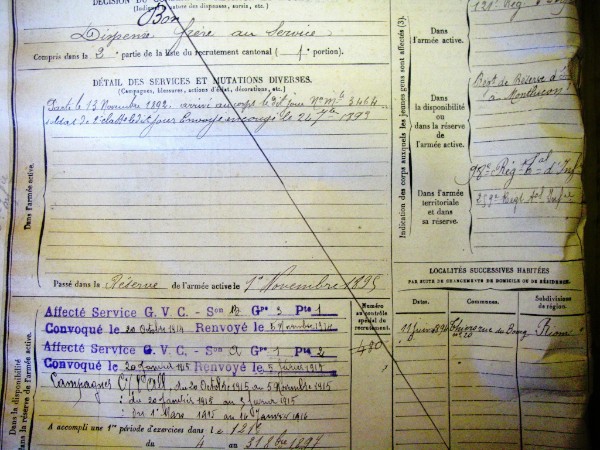 DÉCISION DU CONSEIL
(Indication et nature des dispenses, sursis, etc.)
Bon
Dispensé frère au service
Compris dans la 2e partie de la liste du recrutement cantonal ( portion).
DÉTAIL DES SERVICES ET MUTATIONS DIVERSES.
(Campagnes, blessures, actions d'éclat, décorations, etc.)
Parti le 13 Novembre 1892. arrivé au corps le dit jour No Mle 3464
soldat de 2e classe le dit jour Envoyé en congé le 24 7bre 1893
Dans l'armée active.
Passé dans la Réserve de l'armée active le 1er Novembre 1895
Affecté Service G. V. C. - Son Gpe 3 Pte 1
Convoqué le 20 Octobre 1914 Renvoyé le 5 9vembre 1914
Affecté Service G. V. C. - Son A Gpe 1 Pte 2
Convoqué le 20 Janvier 1915 Renvoyé le 5 février 1915
Campagnes du 20 Octobre 1915 au 5 9vembre 1915
: du 20 janvier 1915 au
: du 1er Mars 1915 au 16 Janvier 1916
A accompli une 1re période d'exercices dans le 121e
du 4 au 31 8bre 1897
Dans la disponibilité ou dans la réserve de l'armée active.
Numéro au contrôle spécial du recrutement.
480
Indication des corps auxquels les jeunes gens sont affectés (3).
Dans l'armée active.
121e Rég.
Dans la disponibilité ou dans la réserve de l'armée active.
de Réserve
à Montluçon
Dans l'armée territoriale et dans sa réserve.
98e Rég. Tal d'Inf
LOCALITÉS SUCCESSIVES HABITÉES
PAR SUITE DE CHANGEMENTS DE DOMICILE OU DE RÉSIDENCE.
Dates.
Communes.
Subdivisions de région.
11 Juin rue du Bourg Riom